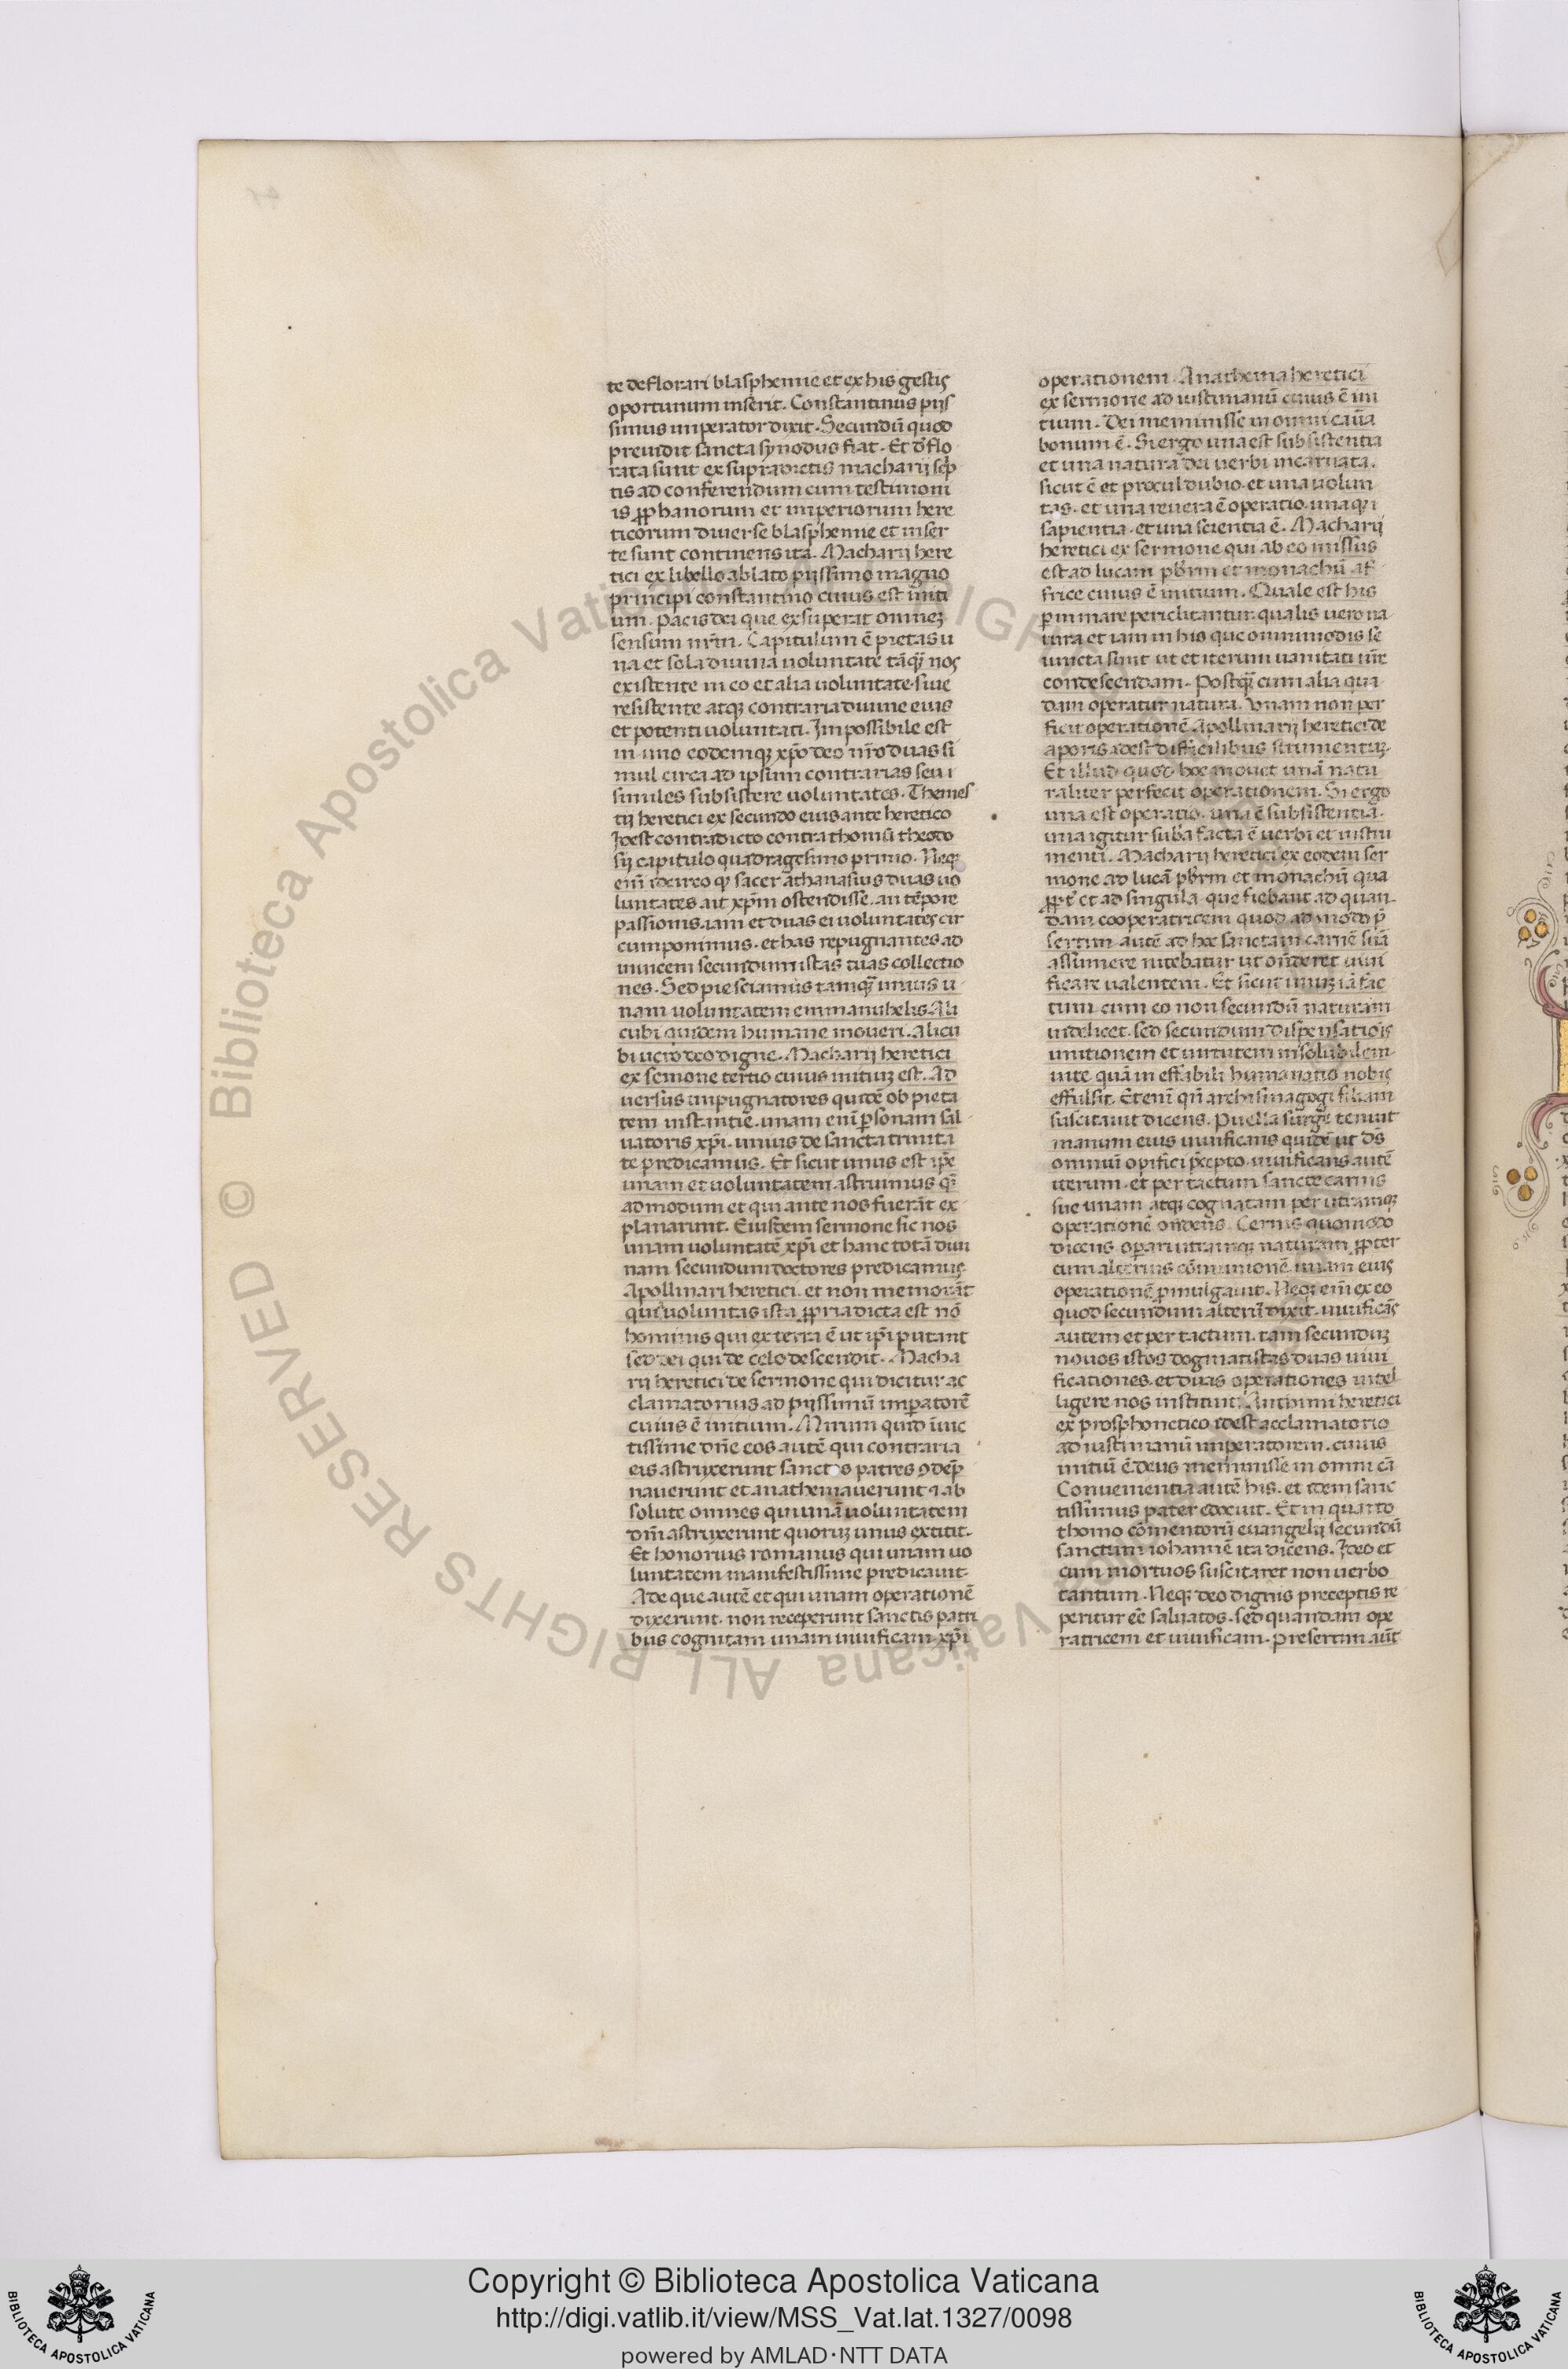 te deflorari blasphemie et ex his gestis
oportunum inserit. Constantinus piis
simus imperator dixit. Secundū quod
previdit sancta synodus fiat. Et d̄flo
rata sunt ex supradictis macharij sc̄p
tis ad conferendum cum testimoni
is ꝓphanorum et imperiorum here
ticorum diuerse blasphemie et inser
te sunt continens ita. Macharij here
tici ex libello ablato pijssimo magno
principi constantino cuius est initi
um. Pacis dei que exsuperat omnez
sensum nr̄m. Capitulum ē pietas u
na et sola diuina uoluntate tāqȝ nos
existente in eo et alia uoluntate siue
resistente atqȝ contraria diuine eius
et potenti uoluntati. Impossibile est
in uno eodemqȝ xp̄o deo nr̄o duas si
mul circa ad ipsum contrarias seu i
similes subsistere uoluntates. Themes
tij heretici ex secundo eius ante heretico
Idest contradicto contra thomū theodo
sij capitulo quadragesimo primo. Neqȝ
enī idcirco qȝ sacer athanasius duas uo
luntates ait xp̄m ostendisse. an tēpore
passionis. iam et duas ei uoluntates cir
cumponimus. et has repugnantes ad
inuicem secundum istas tuas collectio
nes. Sed pie sciamus tamqȝ unius u
nam uoluntatem emmanuhelis. Ali
cubi quidem humane moueri. alicu
bi uero deo digne. Macharij heretici
ex semone tertio cuius initiuȝ est. Ad
uersus impugnatores quidē ob pieta
tem instantiē. unam enī p̄sonam sal
uatoris xp̄i. unius de sancta trinita
te predicamus. Et sicut unus est ip̄e
unam et uoluntatem astruimus qȝ
admodum et qui ante nos fuerāt ex
planarunt. Eiusdem sermone sic nos
unam uoluntatē xp̄i et hanc totā diui
nam secundum doctores predicamus
Apollinari heretici. et non memorāt
qui uoluntas ista ꝓpria dicta est nō
hominis qui ex terra ē ut ip̄i putant
sed dei qui de celo descendit. Macha
rij heretici de sermone qui dicitur ac
clamatorius ad pijssimū imp̄atorē
cuius ē initium. Mirum quid īuic
tissime dn̄e eos autē qui contraria
eis astruxerunt sanctos patres ꝯdēp
nauerunt et anathemauerunt ⁊ ab
solute omnes qui unā uoluntatem
dn̄i astruxerunt quoruȝ unus extitit.
Et honorius romanus qui unam uo
luntatem manifestissime predicauit
Adeque autē et qui unam operationē
dixerunt. non receperunt sanctis patri
bus cognitam unam uiuificam xp̄i
operationem. Anathema heretici
ex sermone ad iustinianū cuius ē ini
tium. Dei meminisse in omni caūa
bonum ē. Si ergo una est subsistentia
et una natura dei uerbi incarnata.
sicut ē et procul dubio. et una uolun
tas. et una reuera ē operatio. unaqȝ
sapientia. et una scientia ē. Macharij
heretici ex sermone qui ab eo missus
est ad lucam pb̄rm et monachū af
frice cuius ē initium. Quale est his
p̄ in mare periclitantur qualis uero na
tura et iam in his que omnimodis se
iuncta sunt ut et iterum uanitati
condescendam. Postqȝ cum alia qua
dam operatur natura. Unam non per
ficit operationē Apollinarij heretici de
aporis idest difficilibus
Et illud quod hoc mouet unā natu
raliter perfecit operationem. Si ergo
una est operatio. una ē subsistentia.
una igitur sub̄a facta ē uerbi et instru
menti. Macharij heretici ex eodem ser
mone ad lucā pb̄rm et monachū qua
ꝓpt̄ et ad singula que fiebant ad quan
dam cooperatricem quod ad modo p̄
sertim autē ad hoc sanctam carnē suā
assumere nitebatur ut on̄deret uiui
ficare ualentem. Et sicut unuȝ iā fac
tum cum eo non secundū naturam
uidelicet. sed secundum dispensatiōis
unitionem et unitatem insolubilem
uite quā ineffabili humanatio nobis
effulsit. Et enī qn̄ archisinagogi filiam
suscitauit dicens. Puella surge tenuit
manum eius uiuificans quidē ut ds̄
omniū opifici p̄cepto. uiuificans autē
iterum. et per tactum sancte carnis
sue unam atqȝ cognatam per utramqȝ
operationē on̄dens. Cernis quomodo
dicens op̄ari utramqȝ naturam ꝓpter
cum alterius cōmunionē unam eius
operationē p̄mulgauit. Neqȝ enī ex eo
quod secundum alterū dixit. uiuificās
autem et per tactum. tam secunduȝ
nouos istos dogmatistas duas uiui
ficationes. et duas operationes intel
ligere nos instituit. Anthimi heretici
ex prosphonetico idest acclamatorio
ad iustinianū imperatorem. cuius
initiū ē. deus meminisse in omni cā
Conuenientia autē his. et idem sanc
tissimus pater edocuit. Et in quarto
thomo cōmentorū euangelij secundū
sanctum iohannē ita dicens. Ideo et
cum mortuos suscitaret non uerbo
tantum. Neqȝ deo dignis preceptis re
peritur eē saluatos. sed quandam ope
ratricem et uiuificam. presertim aūt
© Biblioteca Apostolica Vaticana ALL RIGHTS RESERVED
Copyright © Biblioteca Apostolica Vaticana
http://digi.vatlib.it/view/MSS_Vat.lat.1327/0098
powered by AMLAD·NTT DATA
BIBLIOTECA APOSTOLICA VATICANA
BIBLIOTECA APOSTOLICA VATICANA